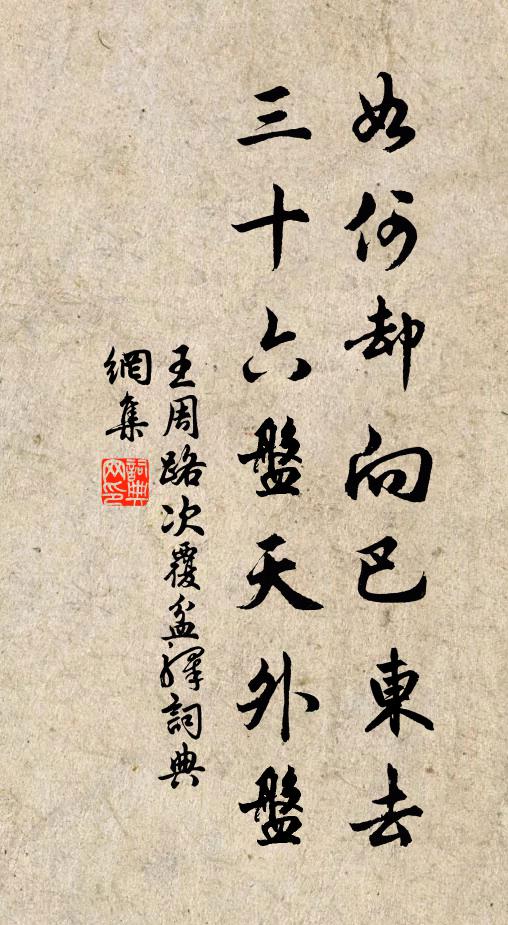 如何却向巴東去
三十六盤天外盤
王周路次覆盆驛詞典
網集
詞典
网印